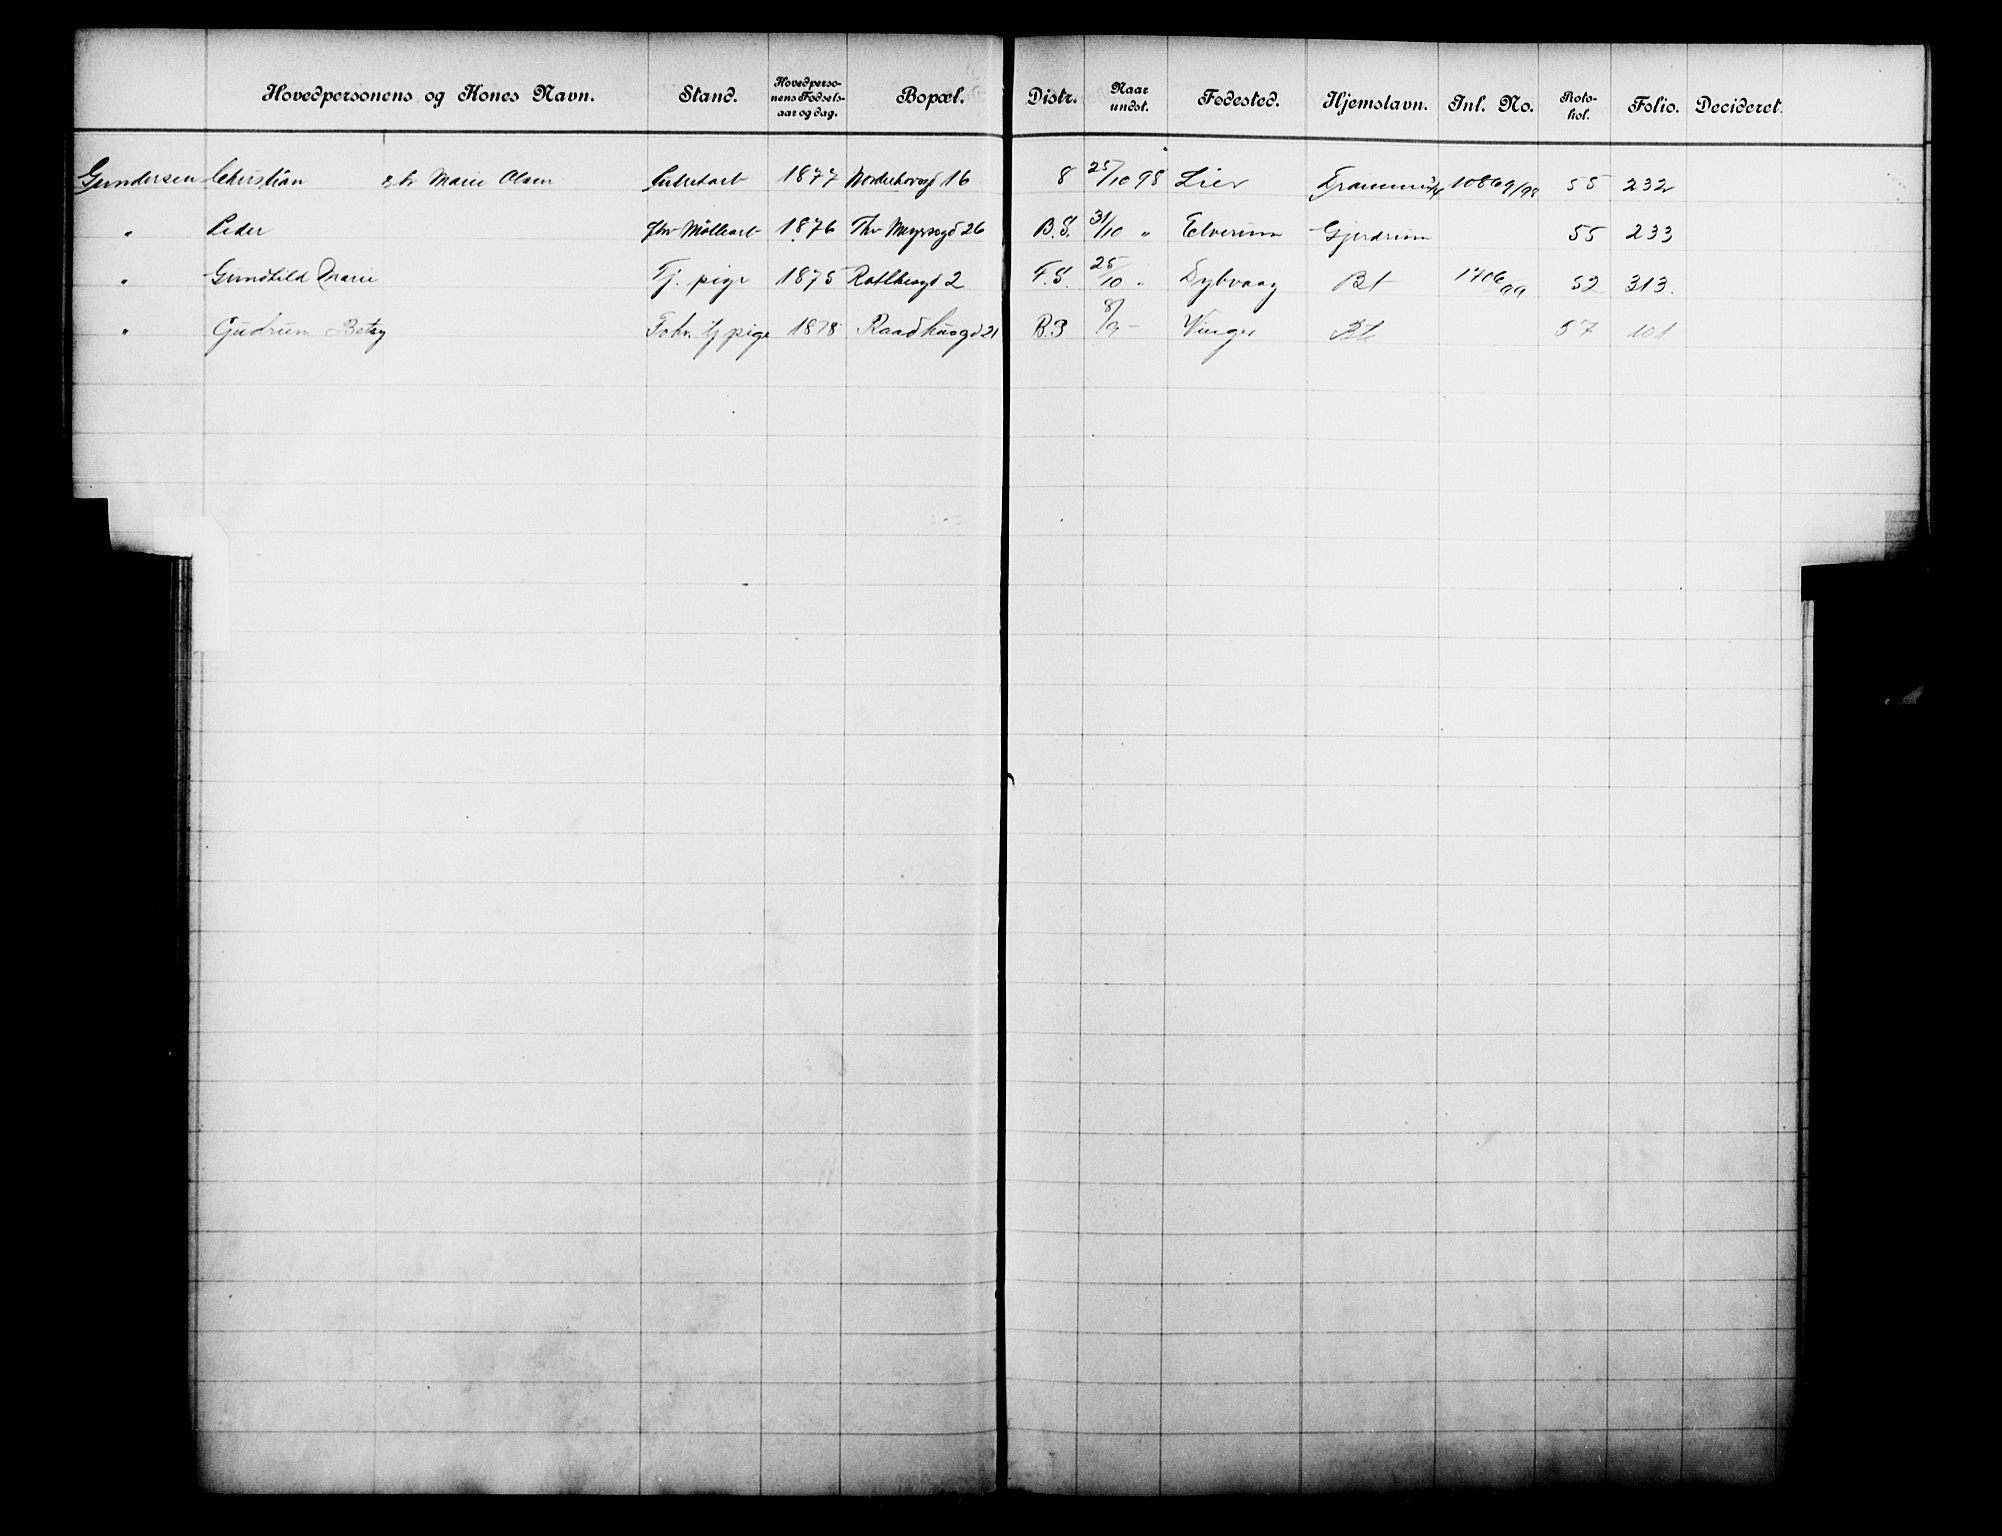 Hovedpersonens og Kones Navn. Stand. Hovedpersonens Fødselsaar og dag. Bopæl. Distr. Naar undst. Fødested. Hjemstavn. Inl. No. Protokol. Folio. Decideret.
Gundersen Christian Marie Olsen 1877 16 8 25/10 98 Lier 10869/98 55 232
" Peder 1876 Thv Meyersgd 26 B.S. 31/10 " Elverum Gjerdrum 55 233
" Gundhild Marie Tj. pige 1875 2 F.S. 25/10 " Dybvaag Bt 1706/99 52 313.
" Gudrun Betzy Tj pige 1878 Raadhusgd 21 B.3 8/9 - Vinger Bt 57 101